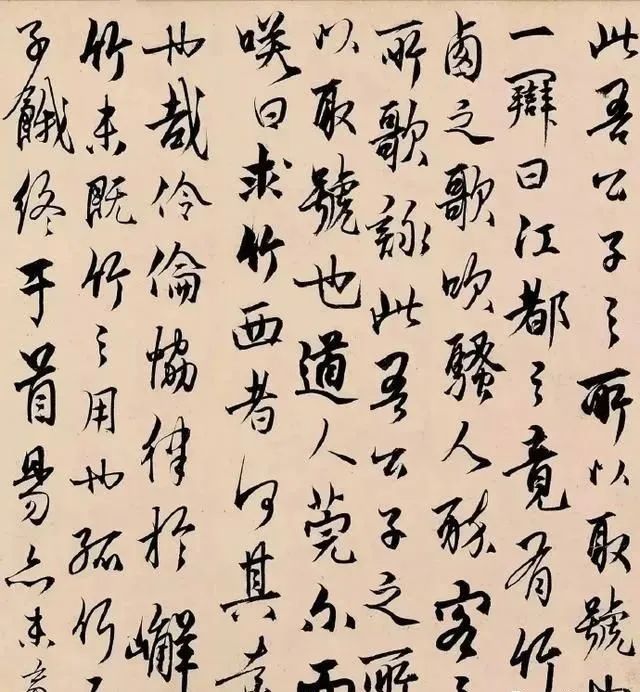 此吾公子之所以取號也
一辯曰江都之竟有竹
鹵之歌吹騷人醉客之
所歌詠此吾公子之所
以取號也道人莞尔而
咲曰求竹西者何其
也哉伶倫協律於嶰
竹未既竹之用也孤竹之
子餓終于首昜亦未